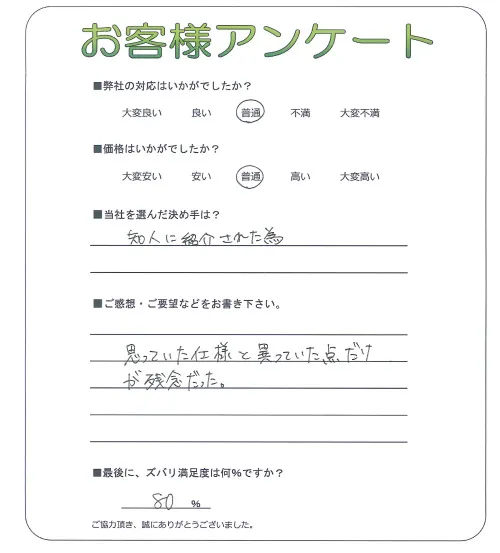 お客様アンケート
■弊社の対応はいかがでしたか？
大変良い 良い 普通 不満 大変不満
■価格はいかがでしたか？
大変安い 安い 普通 高い 大変高い
■当社を選んだ決め手は？
知人に紹介された為
■ご感想・ご要望などをお書き下さい。
思っていた仕様と異っていた点だけ
が残念だった。
■最後に、ズバリ満足度は何％ですか？
80 %
ご協力頂き、誠にありがとうございました。